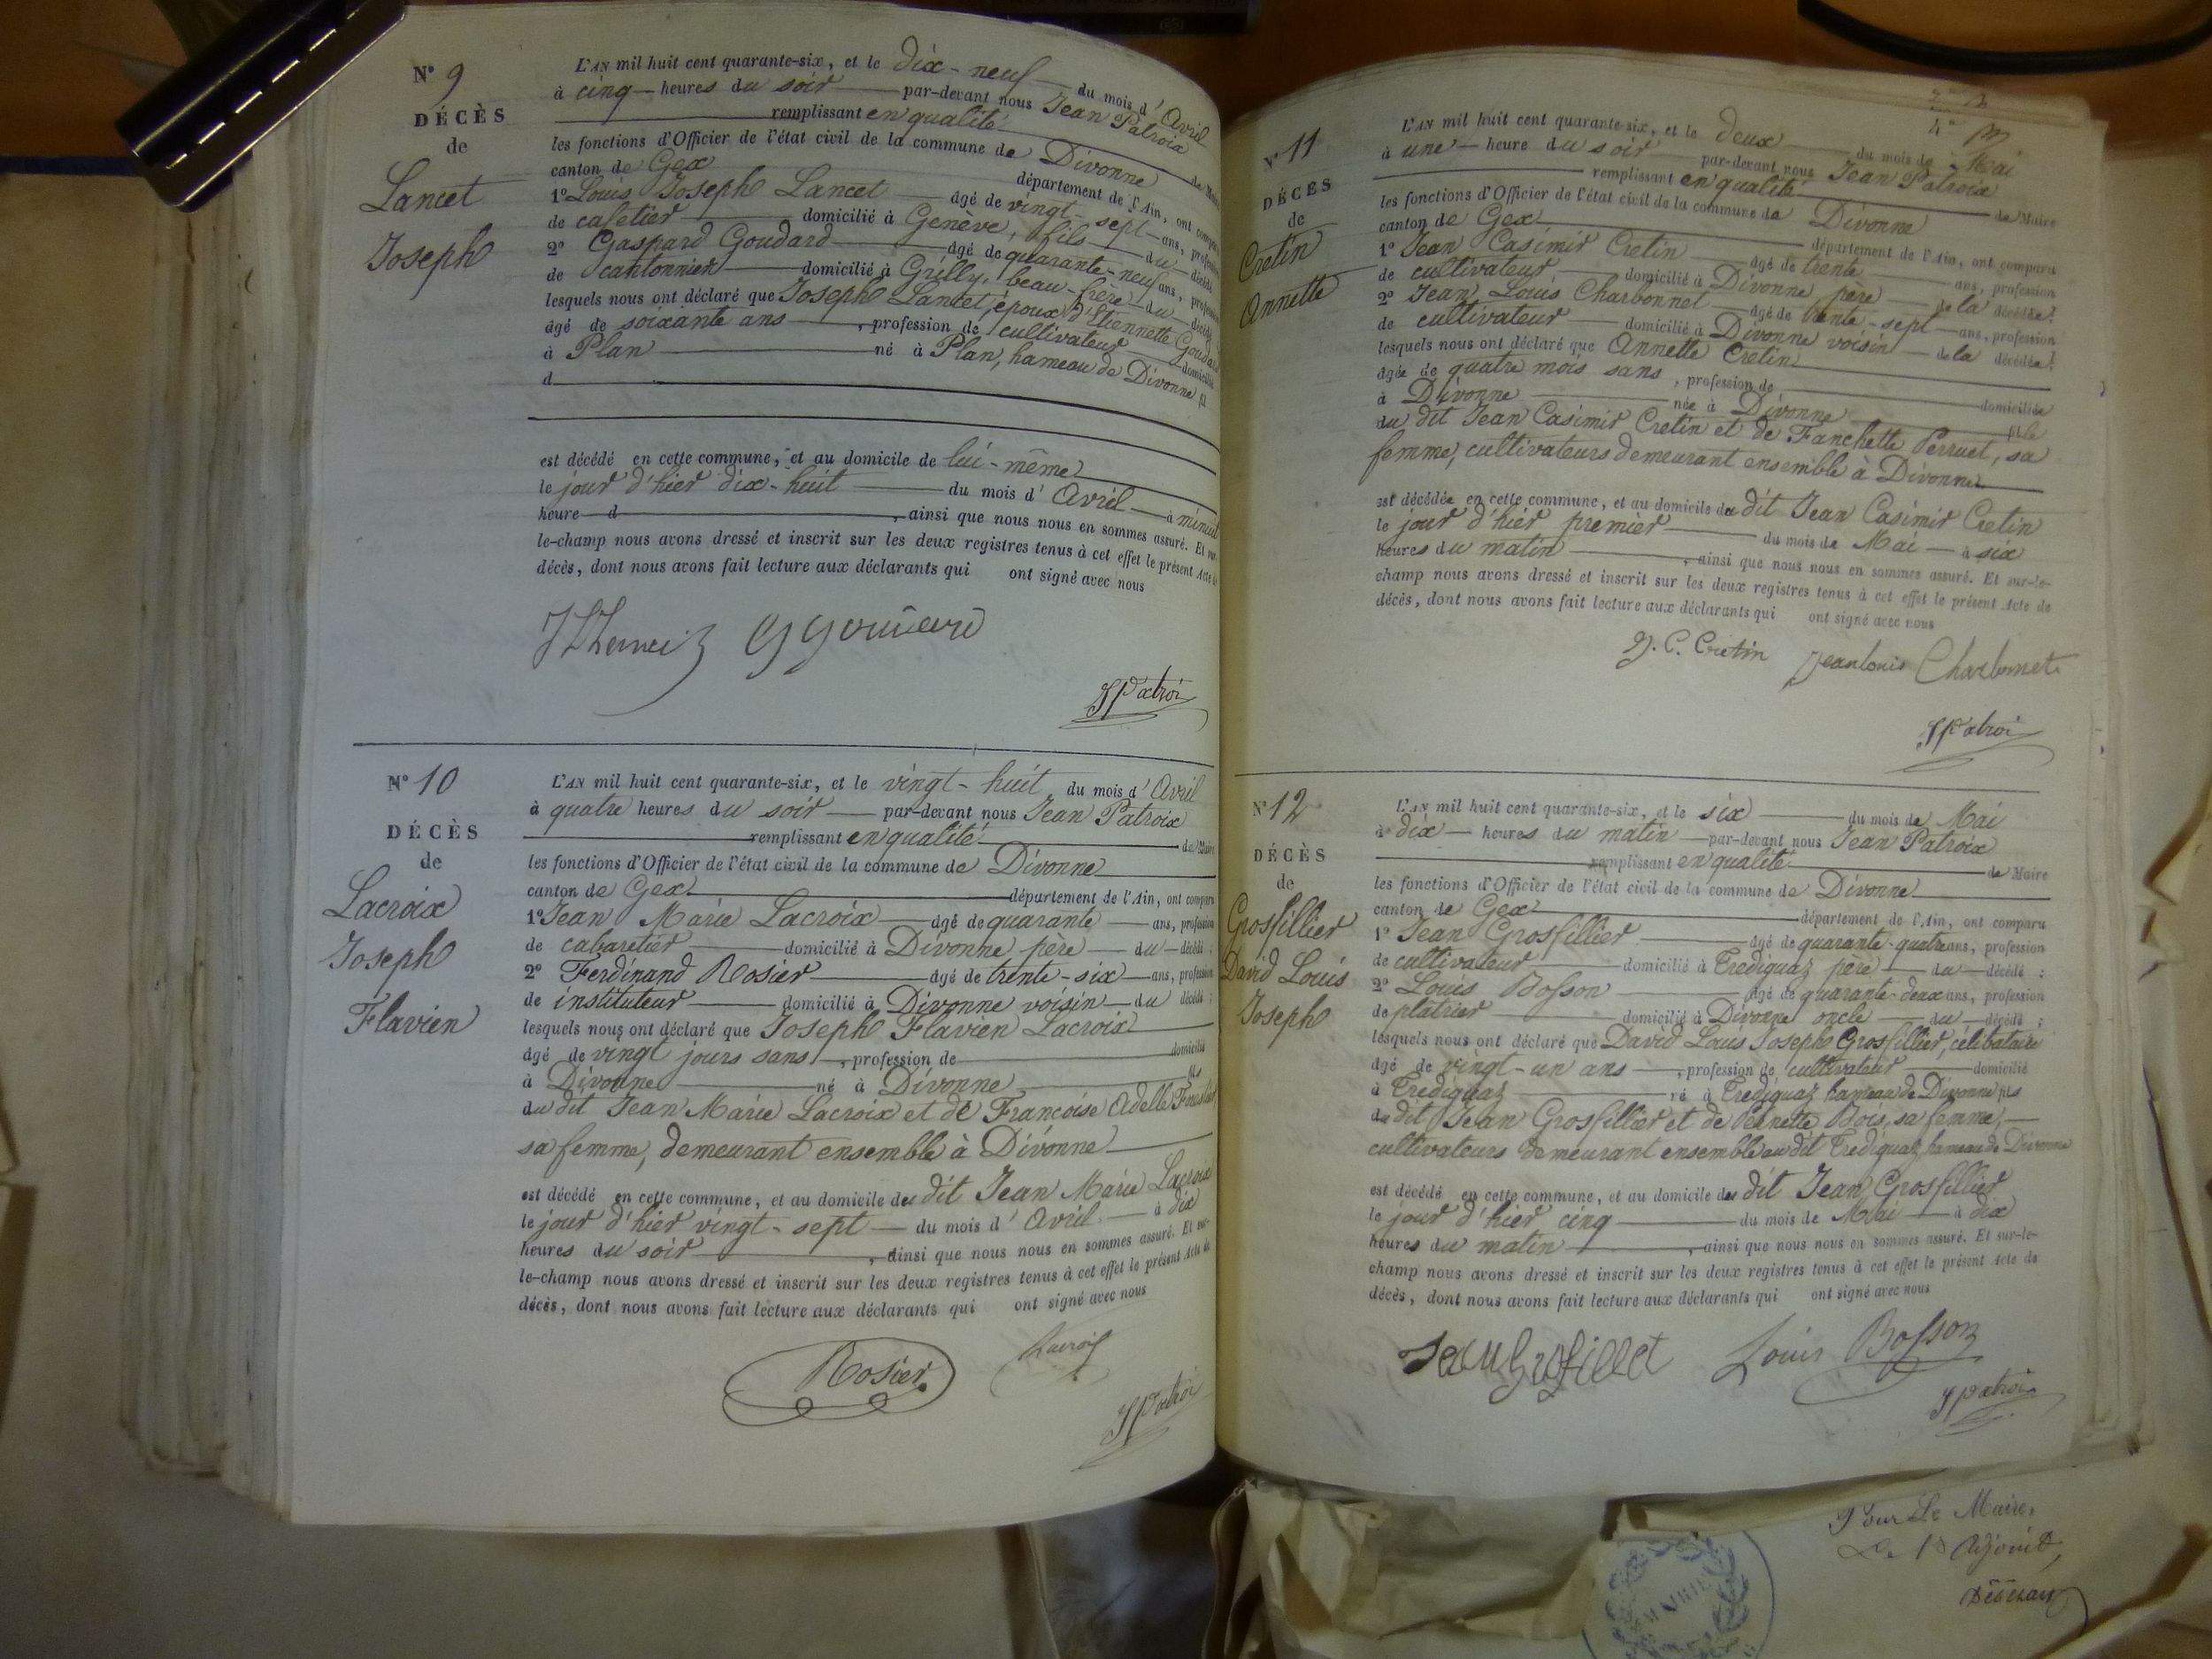 N° 9
DÉCÈS
de
Lancet
Joseph
L'AN mil huit cent quarante-six, et le dix-neuf du mois d'Avril
à cinq heures du soir par-devant nous Jean Patroix
remplissant en qualité de Maire
les fonctions d'Officier de l'état civil de la commune de Divonne
canton de Gex département de l'Ain, ont comparu
1° Louis Joseph Lancet âgé de vingt-sept ans, profession
de cafetier domicilié à Genève, fils du décédé
2° Gaspard Goudard âgé de quarante-neuf ans, profession
de cantonnier domicilié à Grilly, beau-frère du décédé
lesquels nous ont déclaré que Joseph Lancet, époux d'Etiennette Goudard
âgé de soixante ans, profession de cultivateur domicilié
à Plan né à Plan, hameau de Divonne fil
d
est décédé en cette commune, et au domicile de lui-même
le jour d'hier dix-huit du mois d'Avril à minuit
heure d , ainsi que nous nous en sommes assuré. Et sur-
le-champ nous avons dressé et inscrit sur les deux registres tenus à cet effet le présent Acte de
décès, dont nous avons fait lecture aux déclarants qui ont signé avec nous
JPatroi
N° 10
DÉCÈS
de
Lacroix
Joseph
Flavien
L'AN mil huit cent quarante-six, et le vingt-huit du mois d'Avril
à quatre heures du soir par-devant nous Jean Patroix
remplissant en qualité de Maire
les fonctions d'Officier de l'état civil de la commune de Divonne
canton de Gex département de l'Ain, ont comparu
1° Jean Marie Lacroix âgé de quarante ans, profession
de cabaretier domicilié à Divonne père du décédé ;
2° Ferdinand Rosier âgé de trente-six ans, profession
de instituteur domicilié à Divonne voisin du décédé ;
lesquels nous ont déclaré que Joseph Flavien Lacroix
âgé de vingt jours sans , profession de domicilié
à Divonne né à Divonne fils
du dit Jean Marie Lacroix et de Françoise Adelle
sa femme, demeurant ensemble à Divonne
est décédé en cette commune, et au domicile du dit Jean Marie Lacroix
le jour d'hier vingt-sept du mois d'Avril à dix
heures du soir , ainsi que nous nous en sommes assuré. Et sur-
le-champ nous avons dressé et inscrit sur les deux registres tenus à cet effet le présent Acte de
décès, dont nous avons fait lecture aux déclarants qui ont signé avec nous
Rosier
Lacroix
JPatroi
N° 11
DÉCÈS
de
Cretin
Annette
L'AN mil huit cent quarante-six, et le deux du mois de Mai
à une heure du soir par-devant nous Jean Patroix
remplissant en qualité de Maire
les fonctions d'Officier de l'état civil de la commune de Divonne
canton de Gex département de l'Ain, ont comparu
1° Jean Casimir Cretin âgé de trente ans, profession
de cultivateur domicilié à Divonne père de la décédée ;
2° Jean Louis Charbonnet âgé de trente-sept ans, profession
de cultivateur domicilié à Divonne voisin de la décédée ;
lesquels nous ont déclaré que Annette Cretin
âgée de quatre mois sans , profession de domiciliée
à Divonne née à Divonne fille
du dit Jean Casimir Cretin et de Fanchette Perruet, sa
femme, cultivateurs demeurant ensemble à Divonne
est décédée en cette commune, et au domicile du dit Jean Casimir Cretin
le jour d'hier premier du mois de Mai à six
heures du matin , ainsi que nous nous en sommes assuré. Et sur-le-
champ nous avons dressé et inscrit sur les deux registres tenus à cet effet le présent Acte de
décès, dont nous avons fait lecture aux déclarants qui ont signé avec nous
J. C. Cretin Jean louis Charbonnet
JPatroi
N° 12
DÉCÈS
de
Grosfillier
David Louis
Joseph
L'AN mil huit cent quarante-six, et le six du mois de Mai
à dix heures du matin par-devant nous Jean Patroix
remplissant en qualité de Maire
les fonctions d'Officier de l'état civil de la commune de Divonne
canton de Gex département de l'Ain, ont comparu
1° Jean Grosfillier âgé de quarante-quatre ans, profession
de cultivateur domicilié à Trediguaz père du décédé ;
2° Louis Bosson âgé de quarante-deux ans, profession
de plâtrier domicilié à Divonne oncle du décédé ;
lesquels nous ont déclaré que David Louis Joseph Grosfillier, célibataire
âgé de vingt-un ans , profession de cultivateur domicilié
à Trediguaz né à Trediguaz hameau de Divonne fils
du dit Jean Grosfillier et de Pernette Bois, sa femme,
cultivateurs demeurant ensemble au dit Trediguaz hameau de Divonne
est décédé en cette commune, et au domicile du dit Jean Grosfillier
le jour d'hier cinq du mois de Mai à dix
heures du matin , ainsi que nous nous en sommes assuré. Et sur-le-
champ nous avons dressé et inscrit sur les deux registres tenus à cet effet le présent Acte de
décès, dont nous avons fait lecture aux déclarants qui ont signé avec nous
Jean Louis Bosson
JPatroi
Pour Le Maire,
Adjoint,
MAIRIE